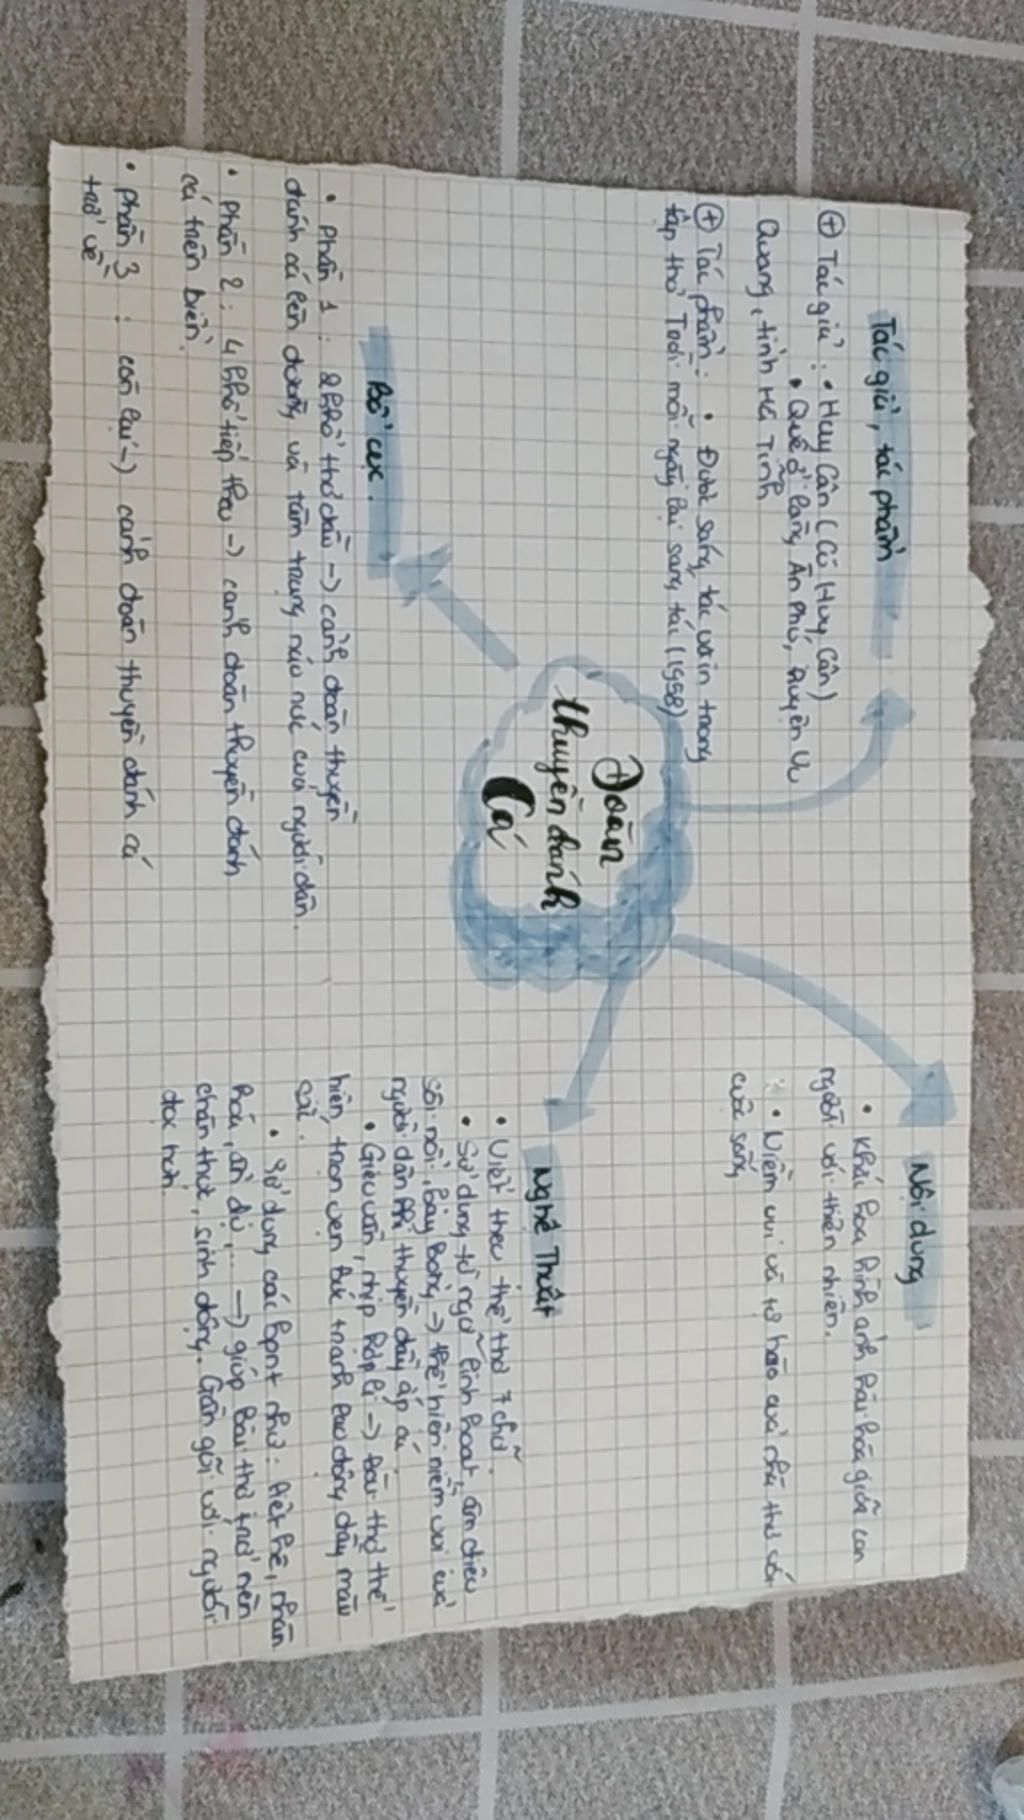 Đoàn
thuyền đánh
Cá
Tác giả, tác phẩm
+ Tác giả : • Huy Cận (Cù Huy Cận)
• Quê ở làng Ân Phú, huyện Vụ
Quang, tỉnh Hà Tĩnh
+ Tác phẩm : • Được sáng tác và in trong
tập thơ Trời mỗi ngày lại sáng tác (1958)
Bố cục.
• Phần 1 : 2 khổ thơ đầu -> cảnh đoàn thuyền
đánh cá lên đường, và tâm trạng náo nức của người dân.
• Phần 2 : 4 khổ tiếp theo -> cảnh đoàn thuyền đánh
cá trên biển.
• Phần 3 : còn lại -> cảnh đoàn thuyền đánh cá
trở về
Nội dung
• Khắc họa hình ảnh hài hòa giữa con
người với thiên nhiên.
• Niềm vui và tự hào của nhà thơ với
cuộc sống
Nghệ Thuật
• Viết theo thể thơ 7 chữ.
• Sử dụng từ ngữ linh hoạt, âm điệu
sôi nổi, bay bổng -> thể hiện niềm vui của
người dân khi thuyền đầy ắp cá
• Gieo vần, nhịp hợp lí -> bài thơ thể
hiện trọn vẹn bức tranh lao động đầy màu
sắc.
• Sử dụng các bpnt như : liệt kê, nhân
hoá, ẩn dụ,... -> giúp bài thơ trở nên
chân thực, sinh động. Gần gũi với người
đọc hơn.